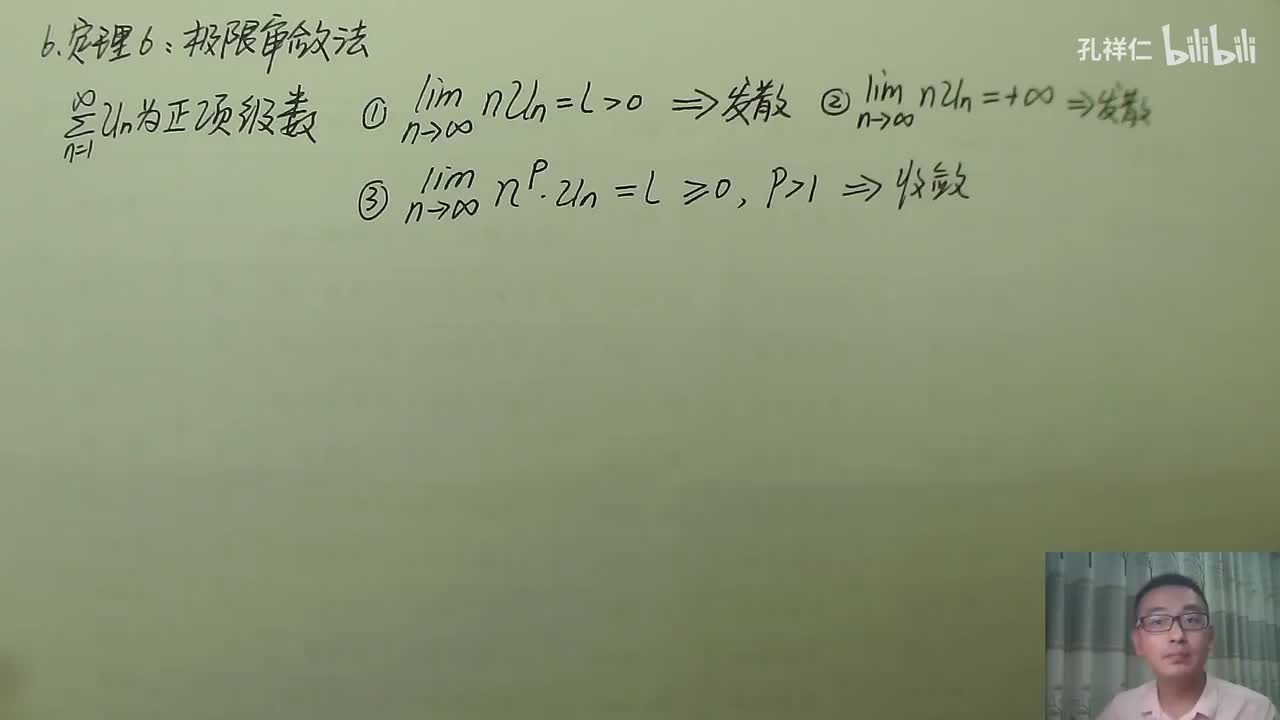 6.定理6：极限审敛法
孔祥仁 bilibili
∞
∑ Un为正项级数 ① lim nUn=l>0 ⇒发散 ② lim nUn=+∞ ⇒发散
n=1 n→∞ n→∞
③ lim n^p·Un=l ≥0, P>1 ⇒ 收敛
n→∞